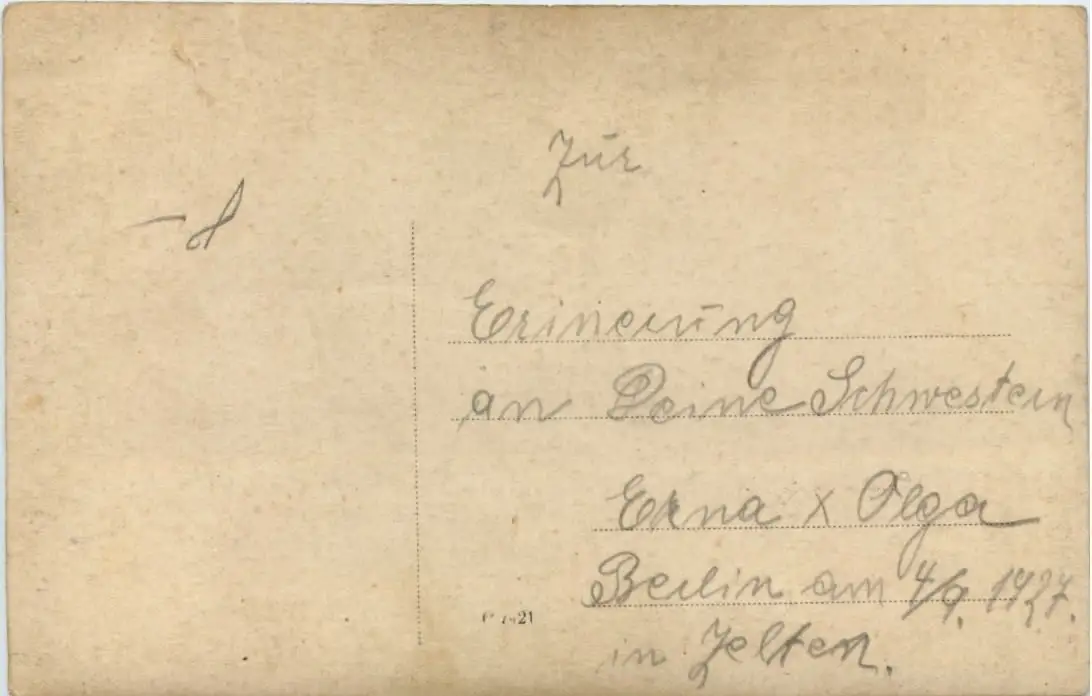 Zur
Erinerung
an Deine Schwestern
Erna x Olga
Berlin am 4/9. 1927.
in Zelten.
21